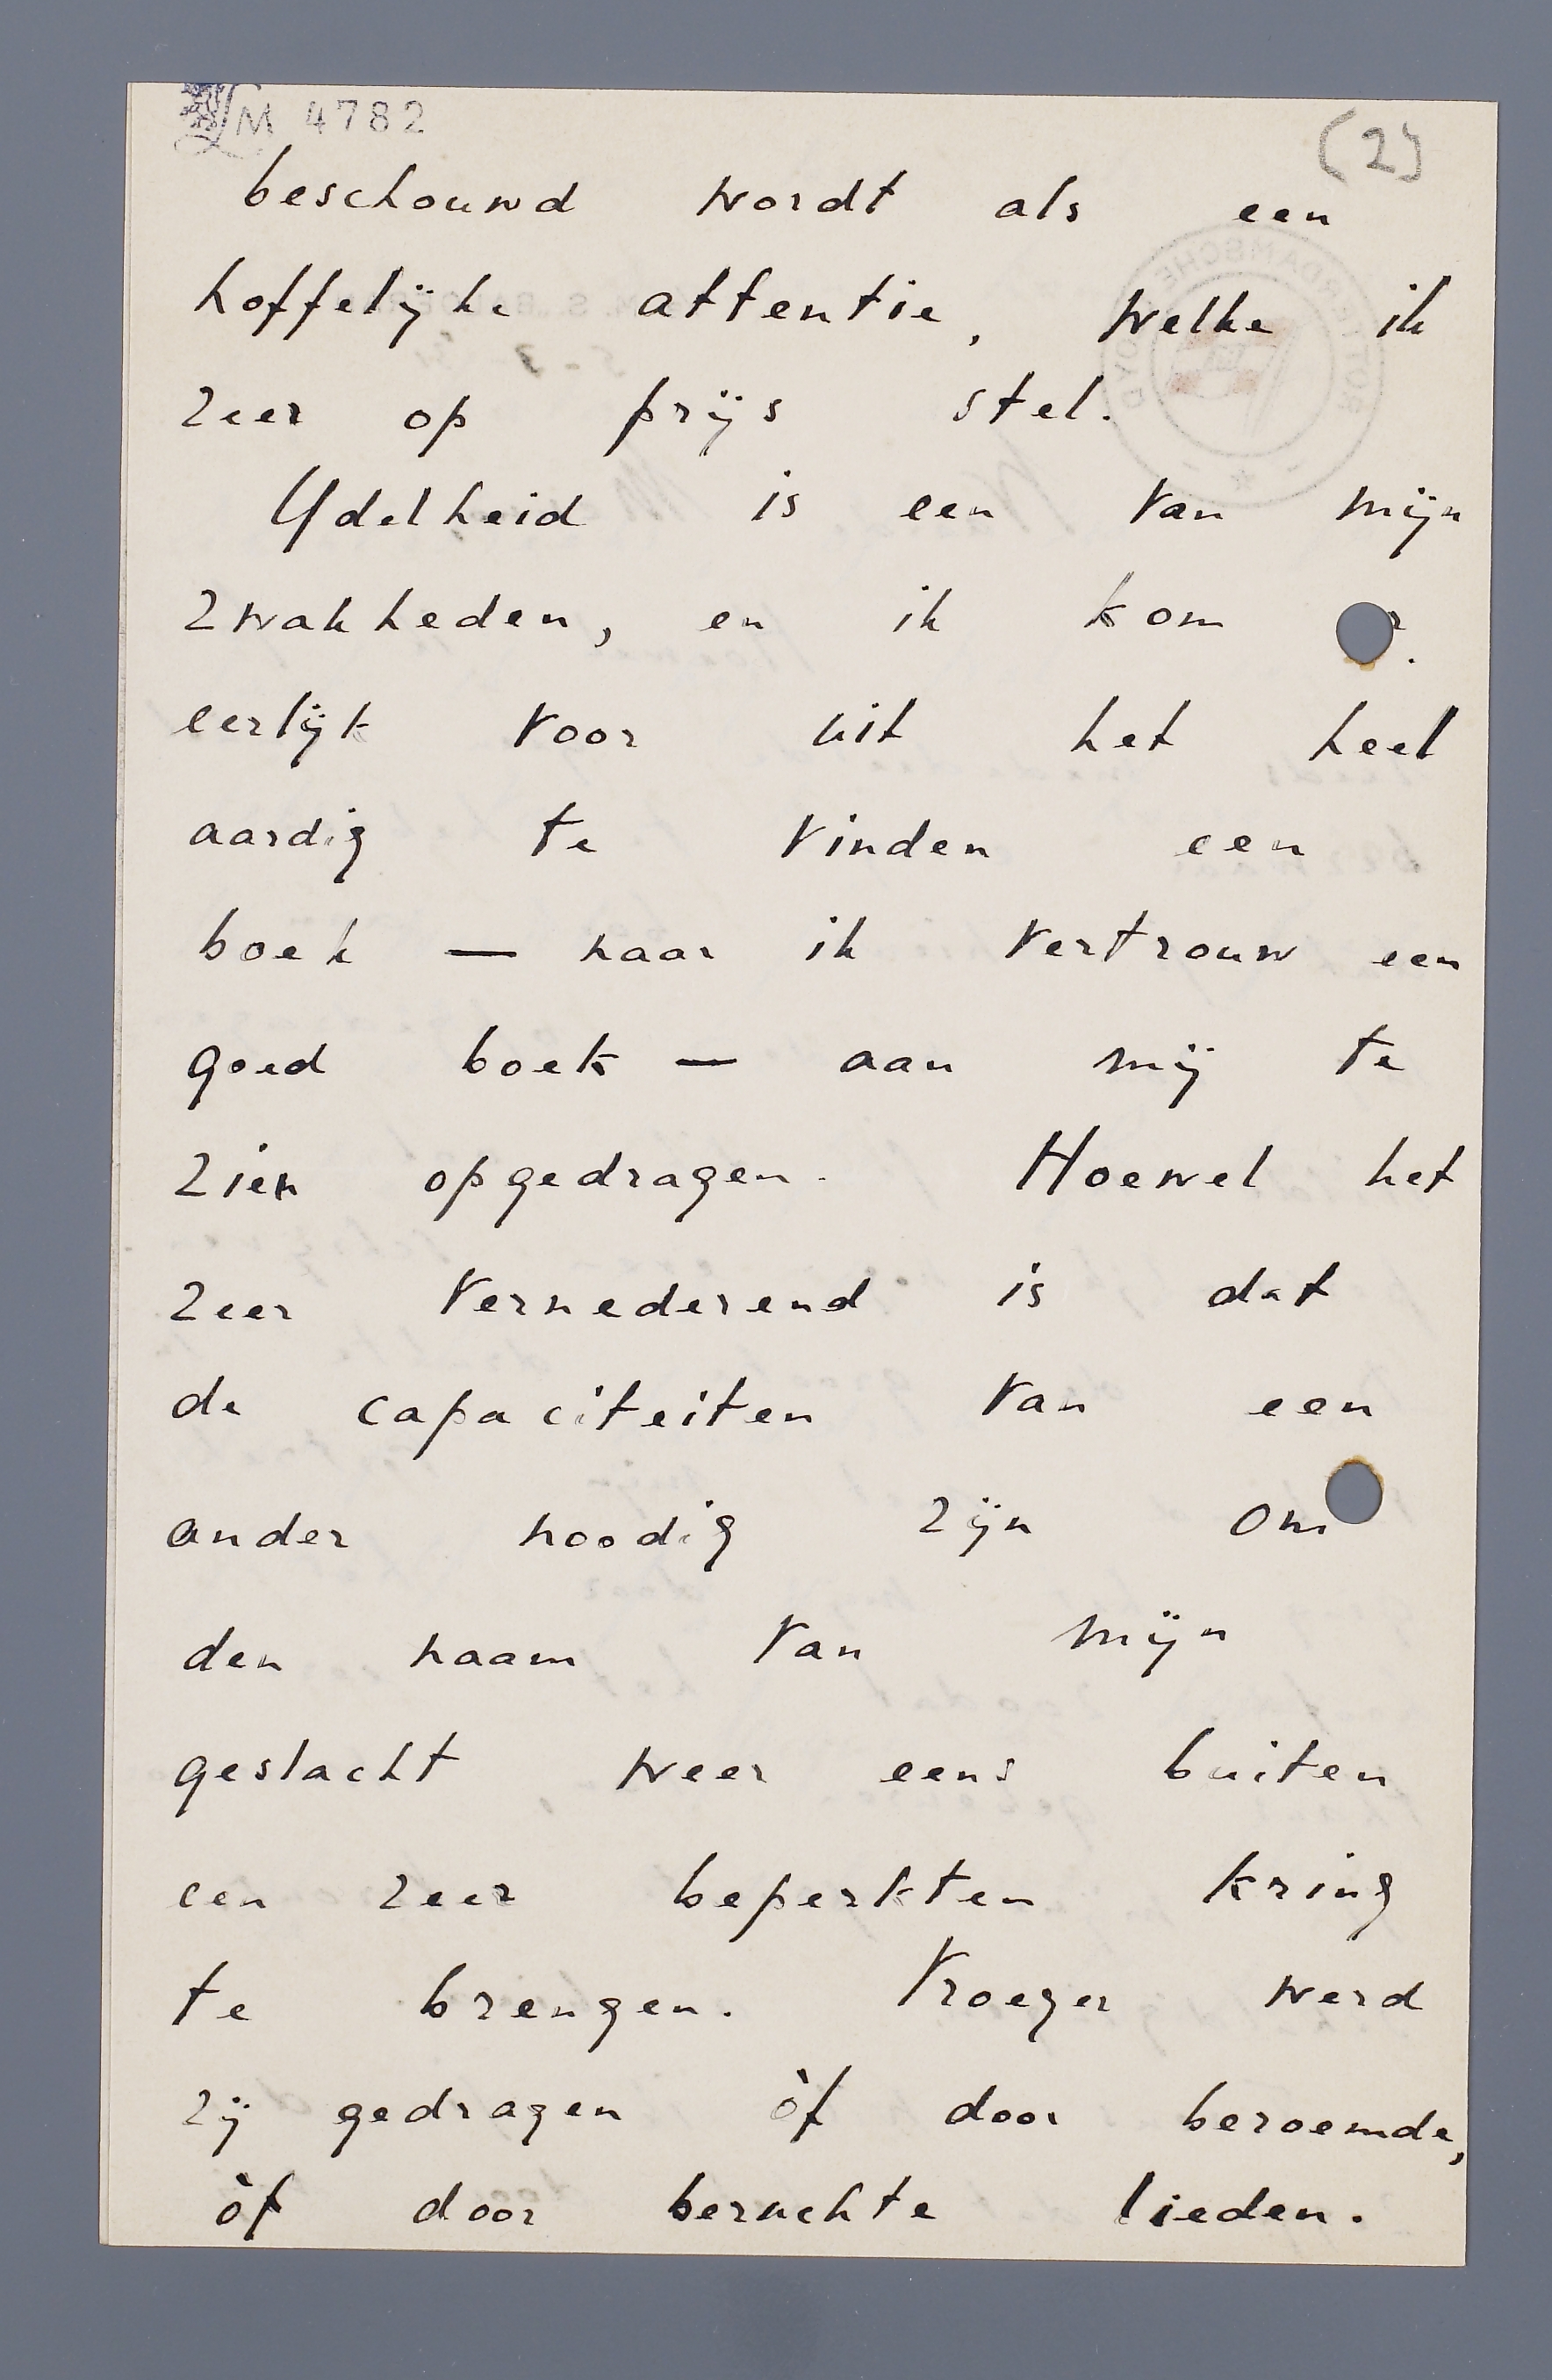 LM 4782
(2)
beschouwd wordt als een
hoffelijke attentie, welke ik
zeer op prijs stel.
Ydelheid is een van mijn
zwakheden, en ik kom
eerlijk voor uit het heel
aardig te vinden een
boek — naar ik vertrouw een
goed boek — aan mij te
zien opgedragen. Hoewel het
zeer vernederend is dat
de capaciteiten van een
ander noodig zijn om
den naam van mijn
geslacht weer eens buiten
een zeer beperkten kring
te brengen. Vroeger werd
zij gedragen òf door beroemde,
òf door beruchte lieden.